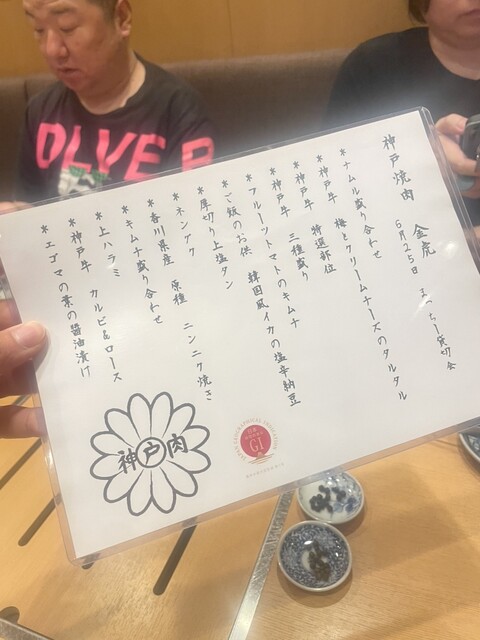 神戸焼肉 金虎
6月25日 まっちー貸切会
＊ナムル盛り合わせ
＊神戸牛 梅とクリームチーズのタルタル
＊神戸牛 特選部位
＊神戸牛 三種盛り
＊フルーツトマトのキムチ
＊ご飯のお供 韓国風イカの塩辛納豆
＊厚切り上塩タン
＊ネンアク
＊香川県産 原種 ニンニク焼き
＊キムチ盛り合わせ
＊上ハラミ
＊神戸牛 カルビ&ロース
＊エゴマの葉の醤油漬け
神戸肉
GI